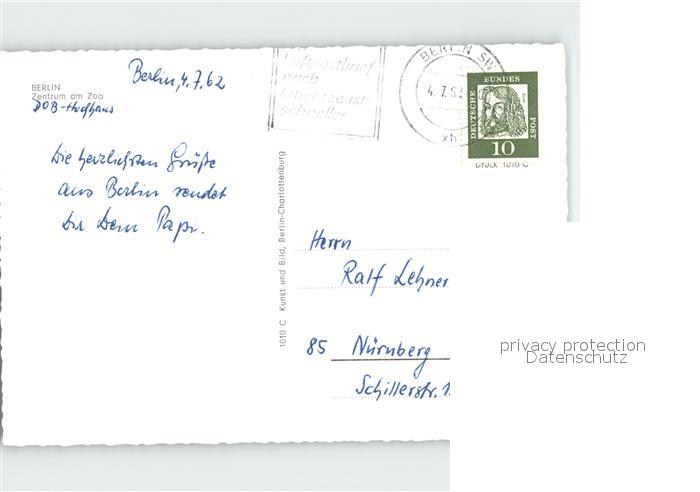 BERLIN
Zentrum am Zoo
DOB-Hochhaus
Berlin, 4.7.62
Die herzlichsten Grüße
aus Berlin sendet
Dir Dein Papi.
1010 C Kunst und Bild, Berlin-Charlottenburg
Luftpostbrief
nach
Übersee ist
schneller
BERLIN SW
4.7.62
xb
DEUTSCHE BUNDES POST
10
Druck 1010 C
Herrn
Ralf Lehner
85 Nürnberg
Schillerstr. 1
privacy protection
Datenschutz